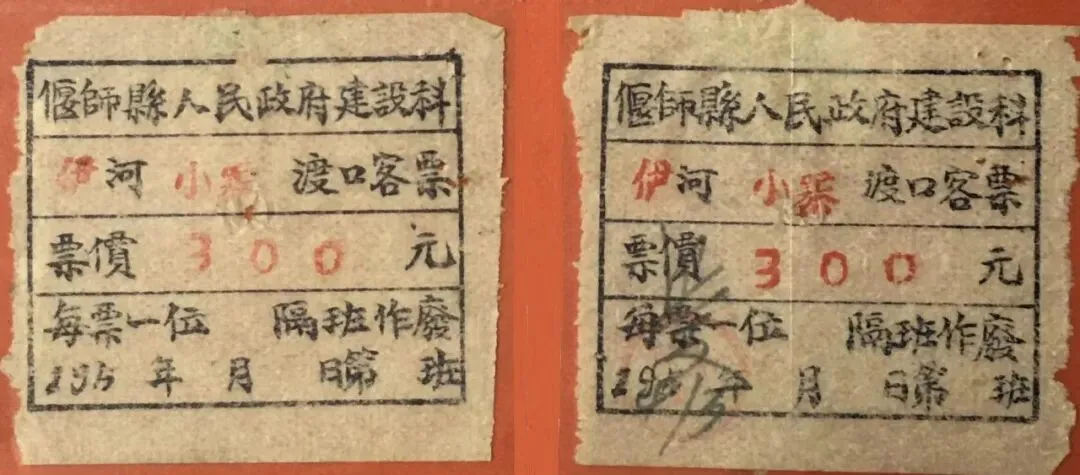 偃師縣人民政府建設科
伊河 小寨 渡口客票
票價 300 元
每票一位 隔班作廢
195 年 月 日第 班
偃師縣人民政府建設科
伊河 小寨 渡口客票
票價 300 元
每票一位 隔班作廢
195 年 月 日第 班